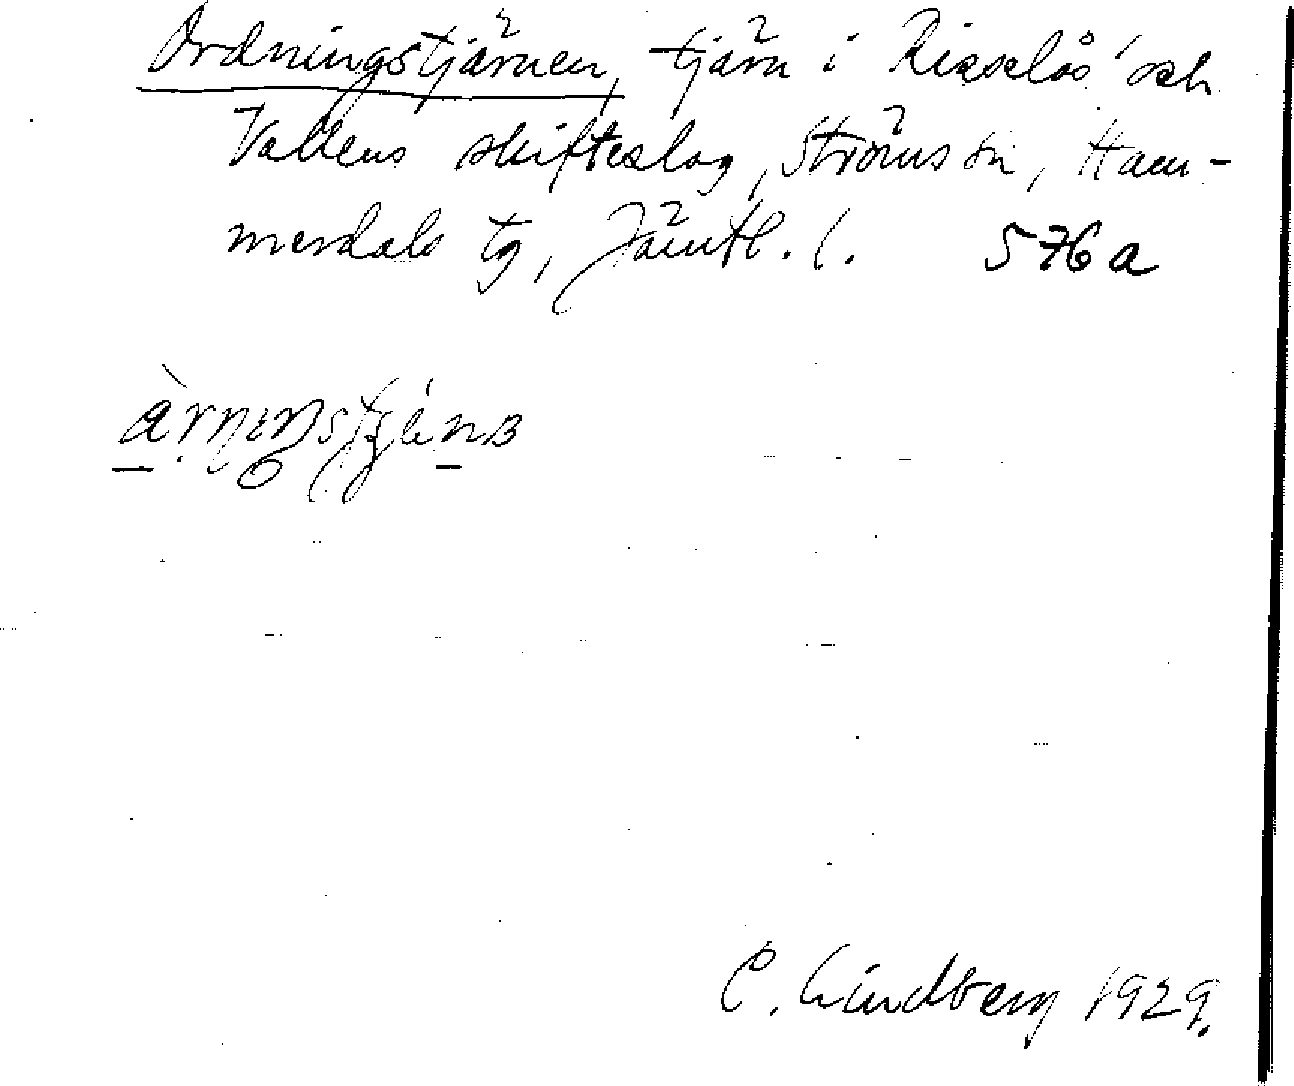 Ordningstjärnen, tjärn i Risselås och
Vallens skifteslag, Ströms sn, Ham-
merdals tg, Jämtl. l. 576 a
C. Lindberg 1929.